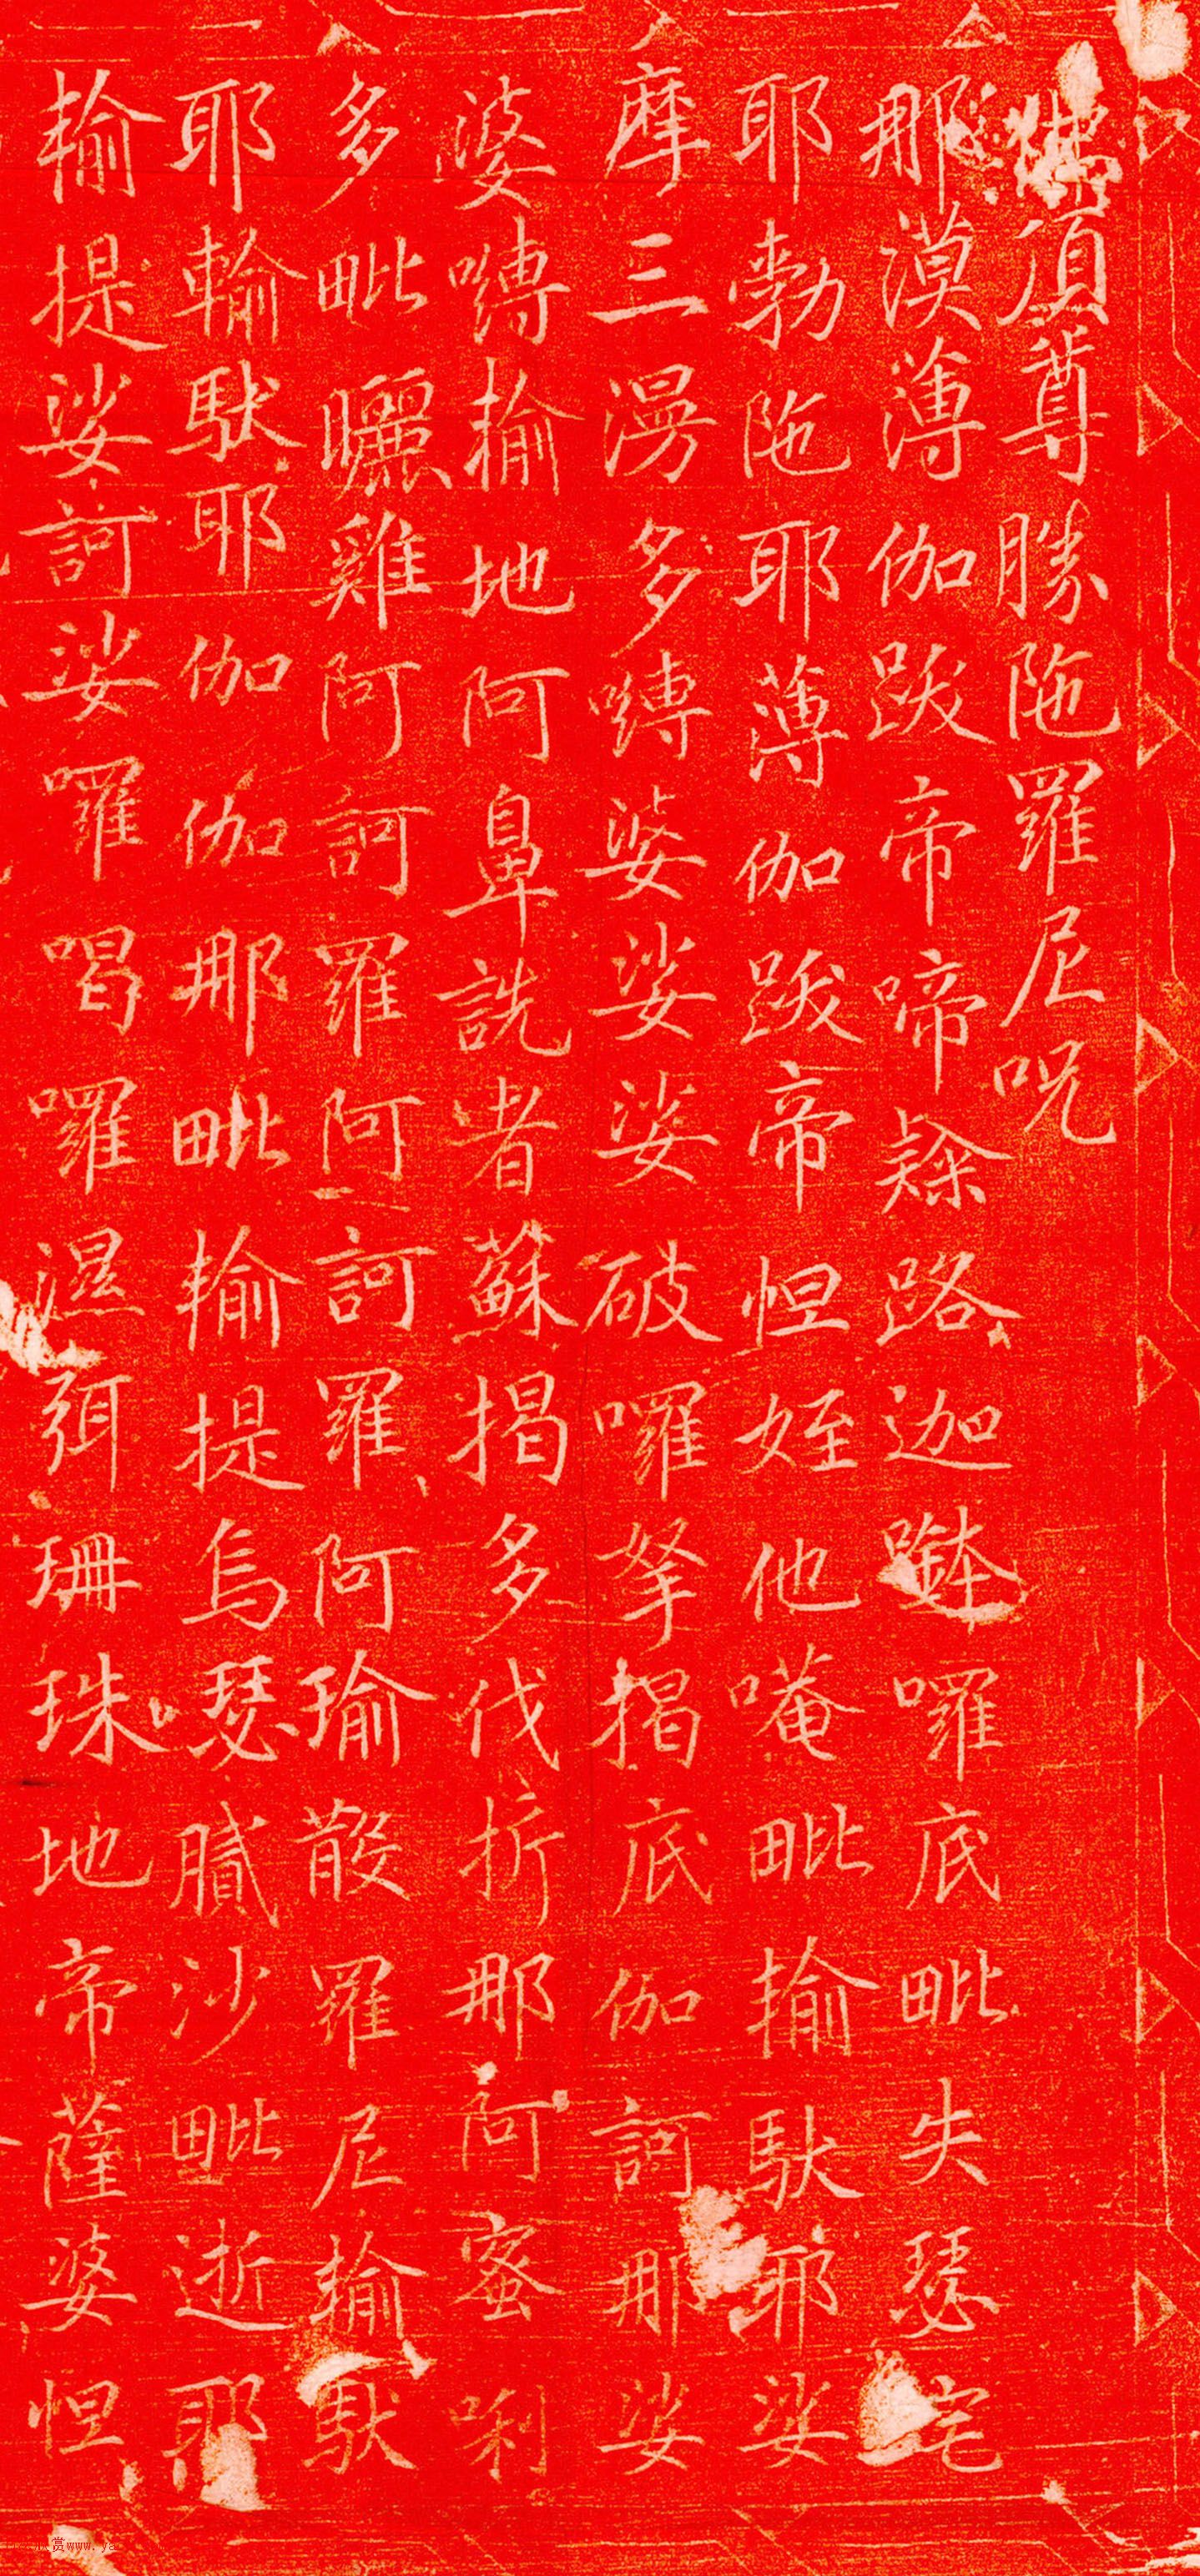 佛頂尊勝陁羅尼咒
那謨薄伽跋帝啼隸路迦鉢囉底毗失瑟宅
耶勃陁耶薄伽跋帝怛姪他唵毗揄馱耶娑
摩三漫多嚩婆娑娑破囉拏揭底伽訶那娑
婆嚩揄地阿鼻詵者蘇揭多伐折那阿蜜唎
多毗曬雞阿訶羅阿訶羅阿瑜散羅尼輸馱
耶輸馱耶伽伽那毗輸提烏瑟膩沙毗逝耶
輸提娑訶娑囉喝囉濕弭珊珠地帝薩婆怛